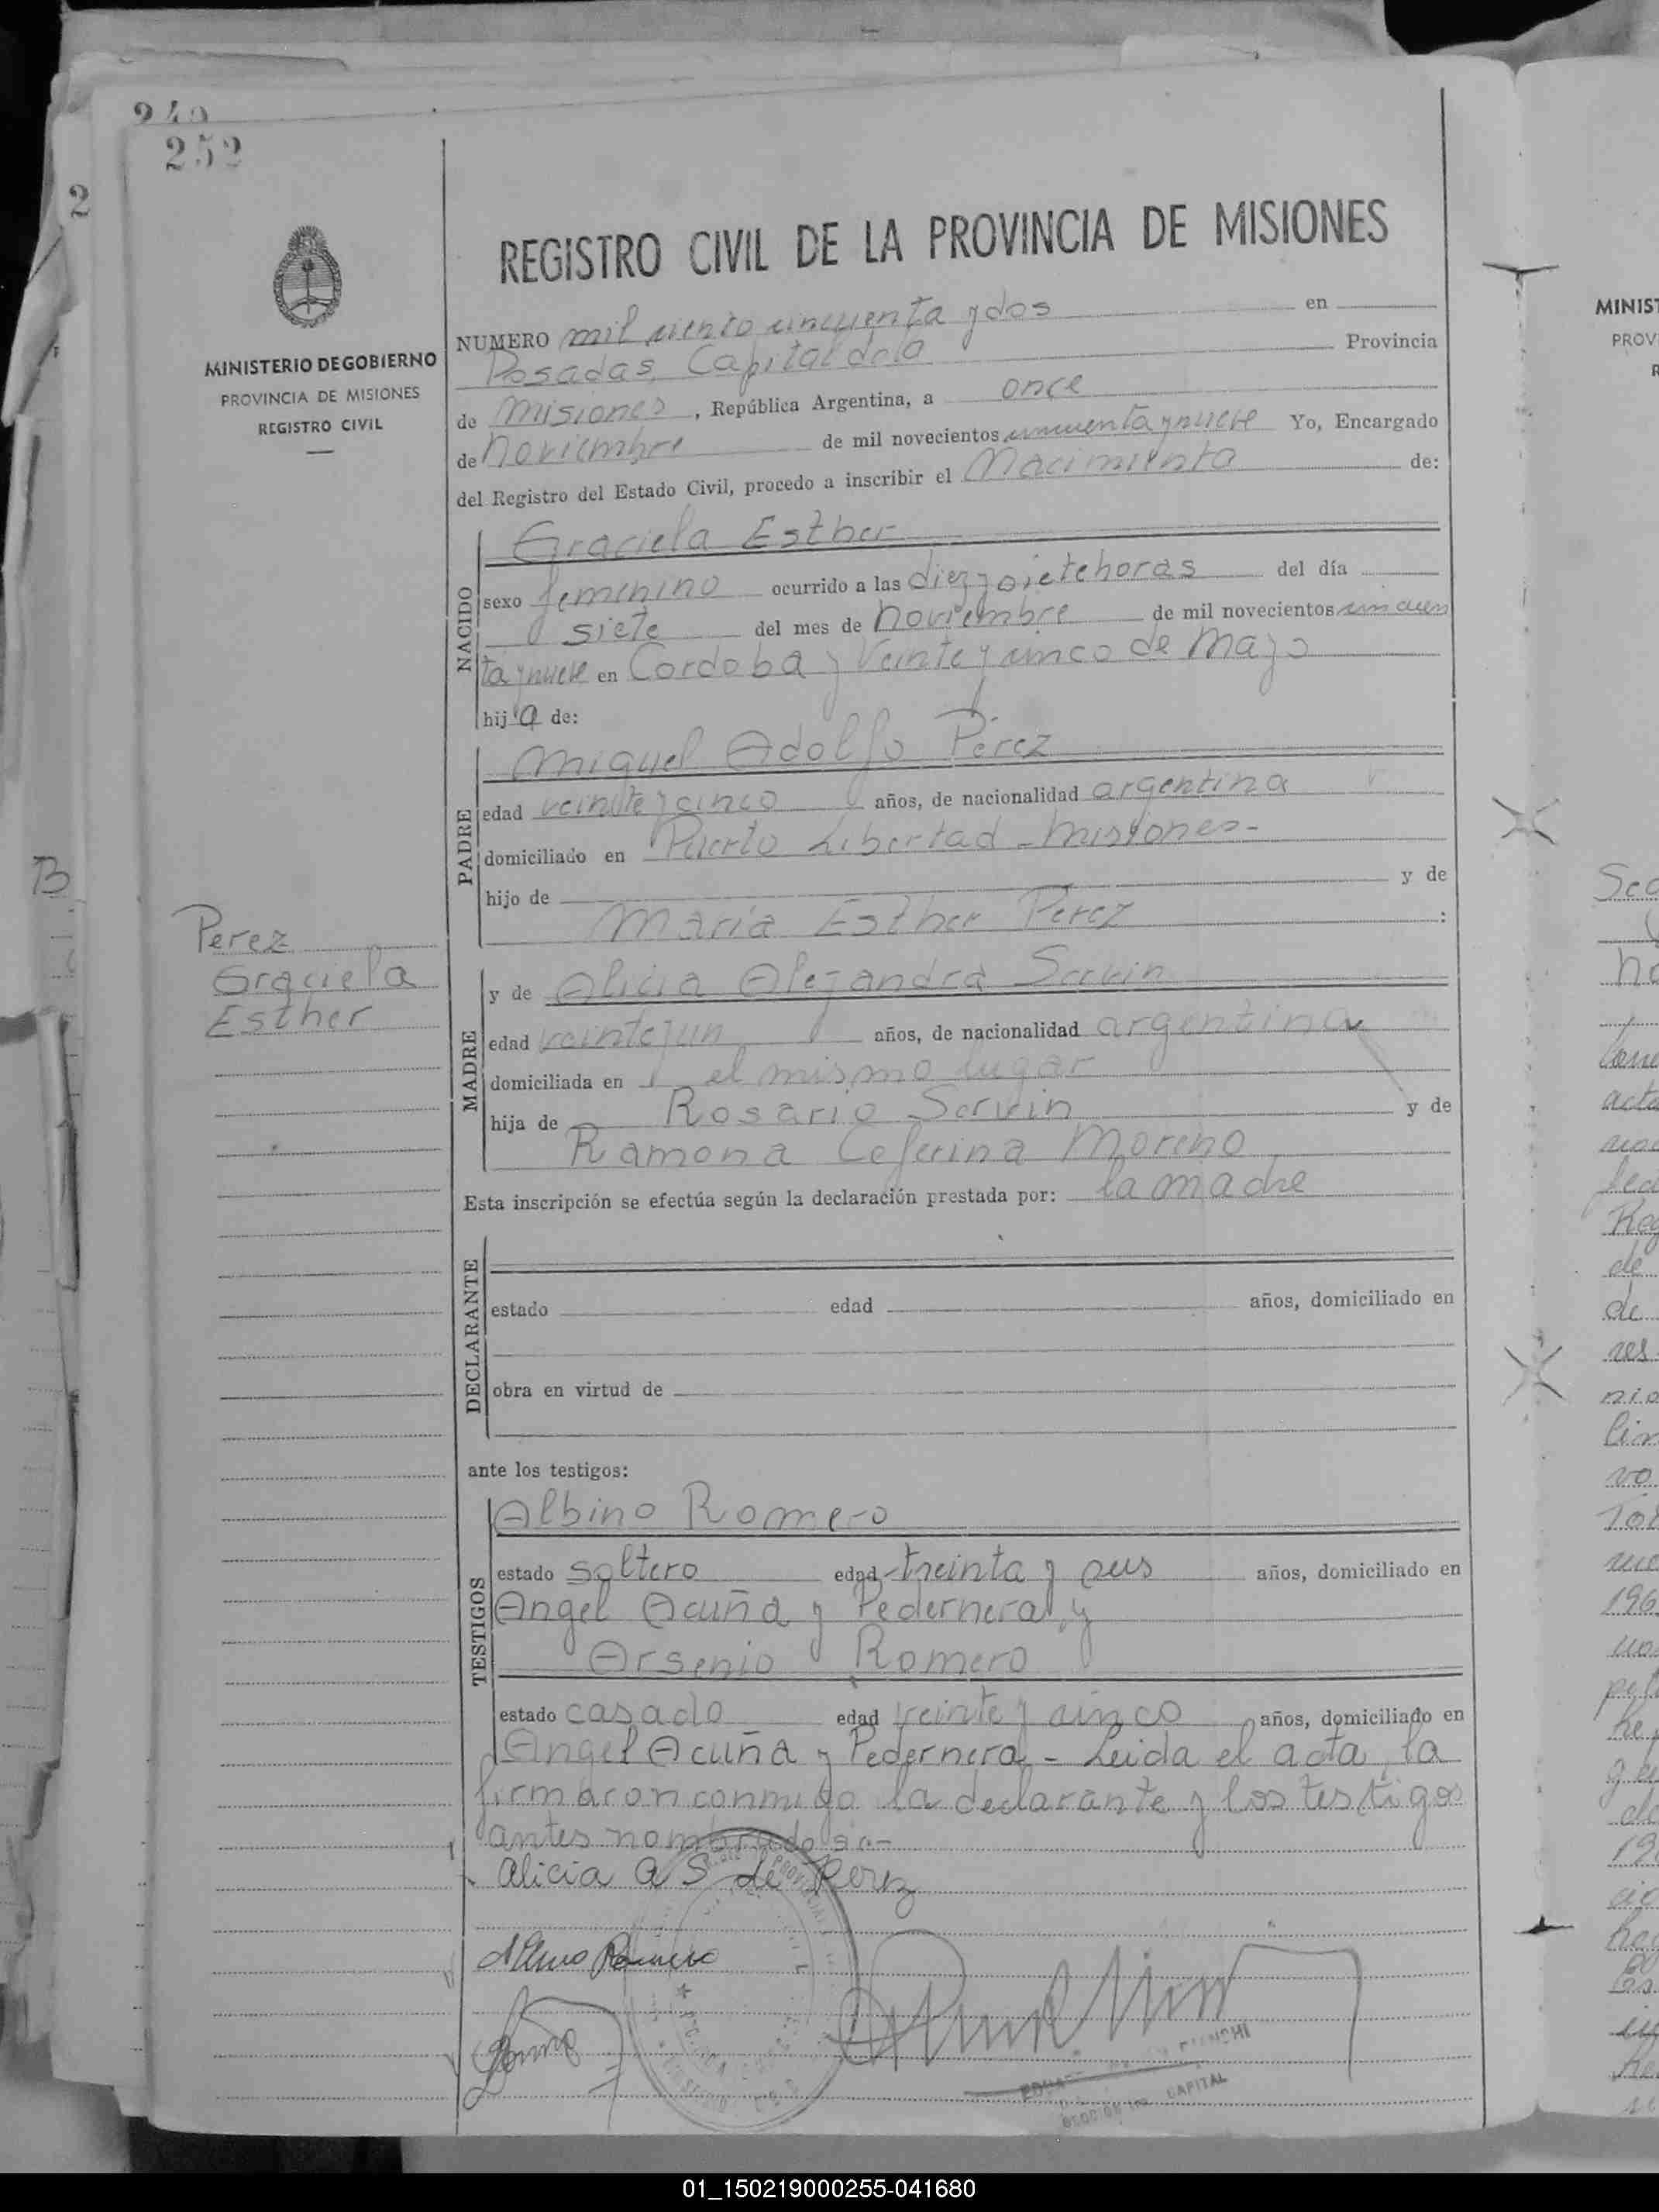 240
252
2
MINISTERIO DE GOBIERNO
PROVINCIA DE MISIONES
REGISTRO CIVIL
REGISTRO CIVIL DE LA PROVINCIA DE MISIONES
NUMERO mil ciento cincuenta y dos en
Posadas, Capital de la Provincia
de Misiones, República Argentina, a once
de Noviembre de mil novecientos cincuenta y nueve Yo, Encargado
del Registro del Estado Civil, procedo a inscribir el Nacimiento de:
NACIDO
Graciela Esther
sexo femenino ocurrido a las diez y siete horas del día
siete del mes de Noviembre de mil novecientos cincuen
ta y nueve en Cordoba y Veinte y cinco de Mayo
hija de:
PADRE
Miguel Adolfo Pérez
edad veinte y cinco años, de nacionalidad argentina
domiciliado en Puerto Libertad - Misiones-
hijo de y de
María Esther Perez :
Perez
Graciela
Esther
MADRE
y de Alicia Alejandra Servin
edad veinte y un años, de nacionalidad argentina
domiciliada en el mismo lugar
hija de Rosario Servin y de
Ramona Ceferina Moreno
Esta inscripción se efectúa según la declaración prestada por: la madre
DECLARANTE
estado edad años, domiciliado en
obra en virtud de
ante los testigos:
TESTIGOS
Albino Romero
estado soltero edad treinta y seis años, domiciliado en
Angel Acuña y Pedernera y
Arsenio Romero
estado casado edad veinte y cinco años, domiciliado en
Angel Acuña y Pedernera - Leida el acta, la
firmaron conmigo la declarante y los testigos
antes nombrados.-
Alicia A S de Perez
Albino Romero
CAPITAL
MINIST
PROV
B
01_150219000255-041680